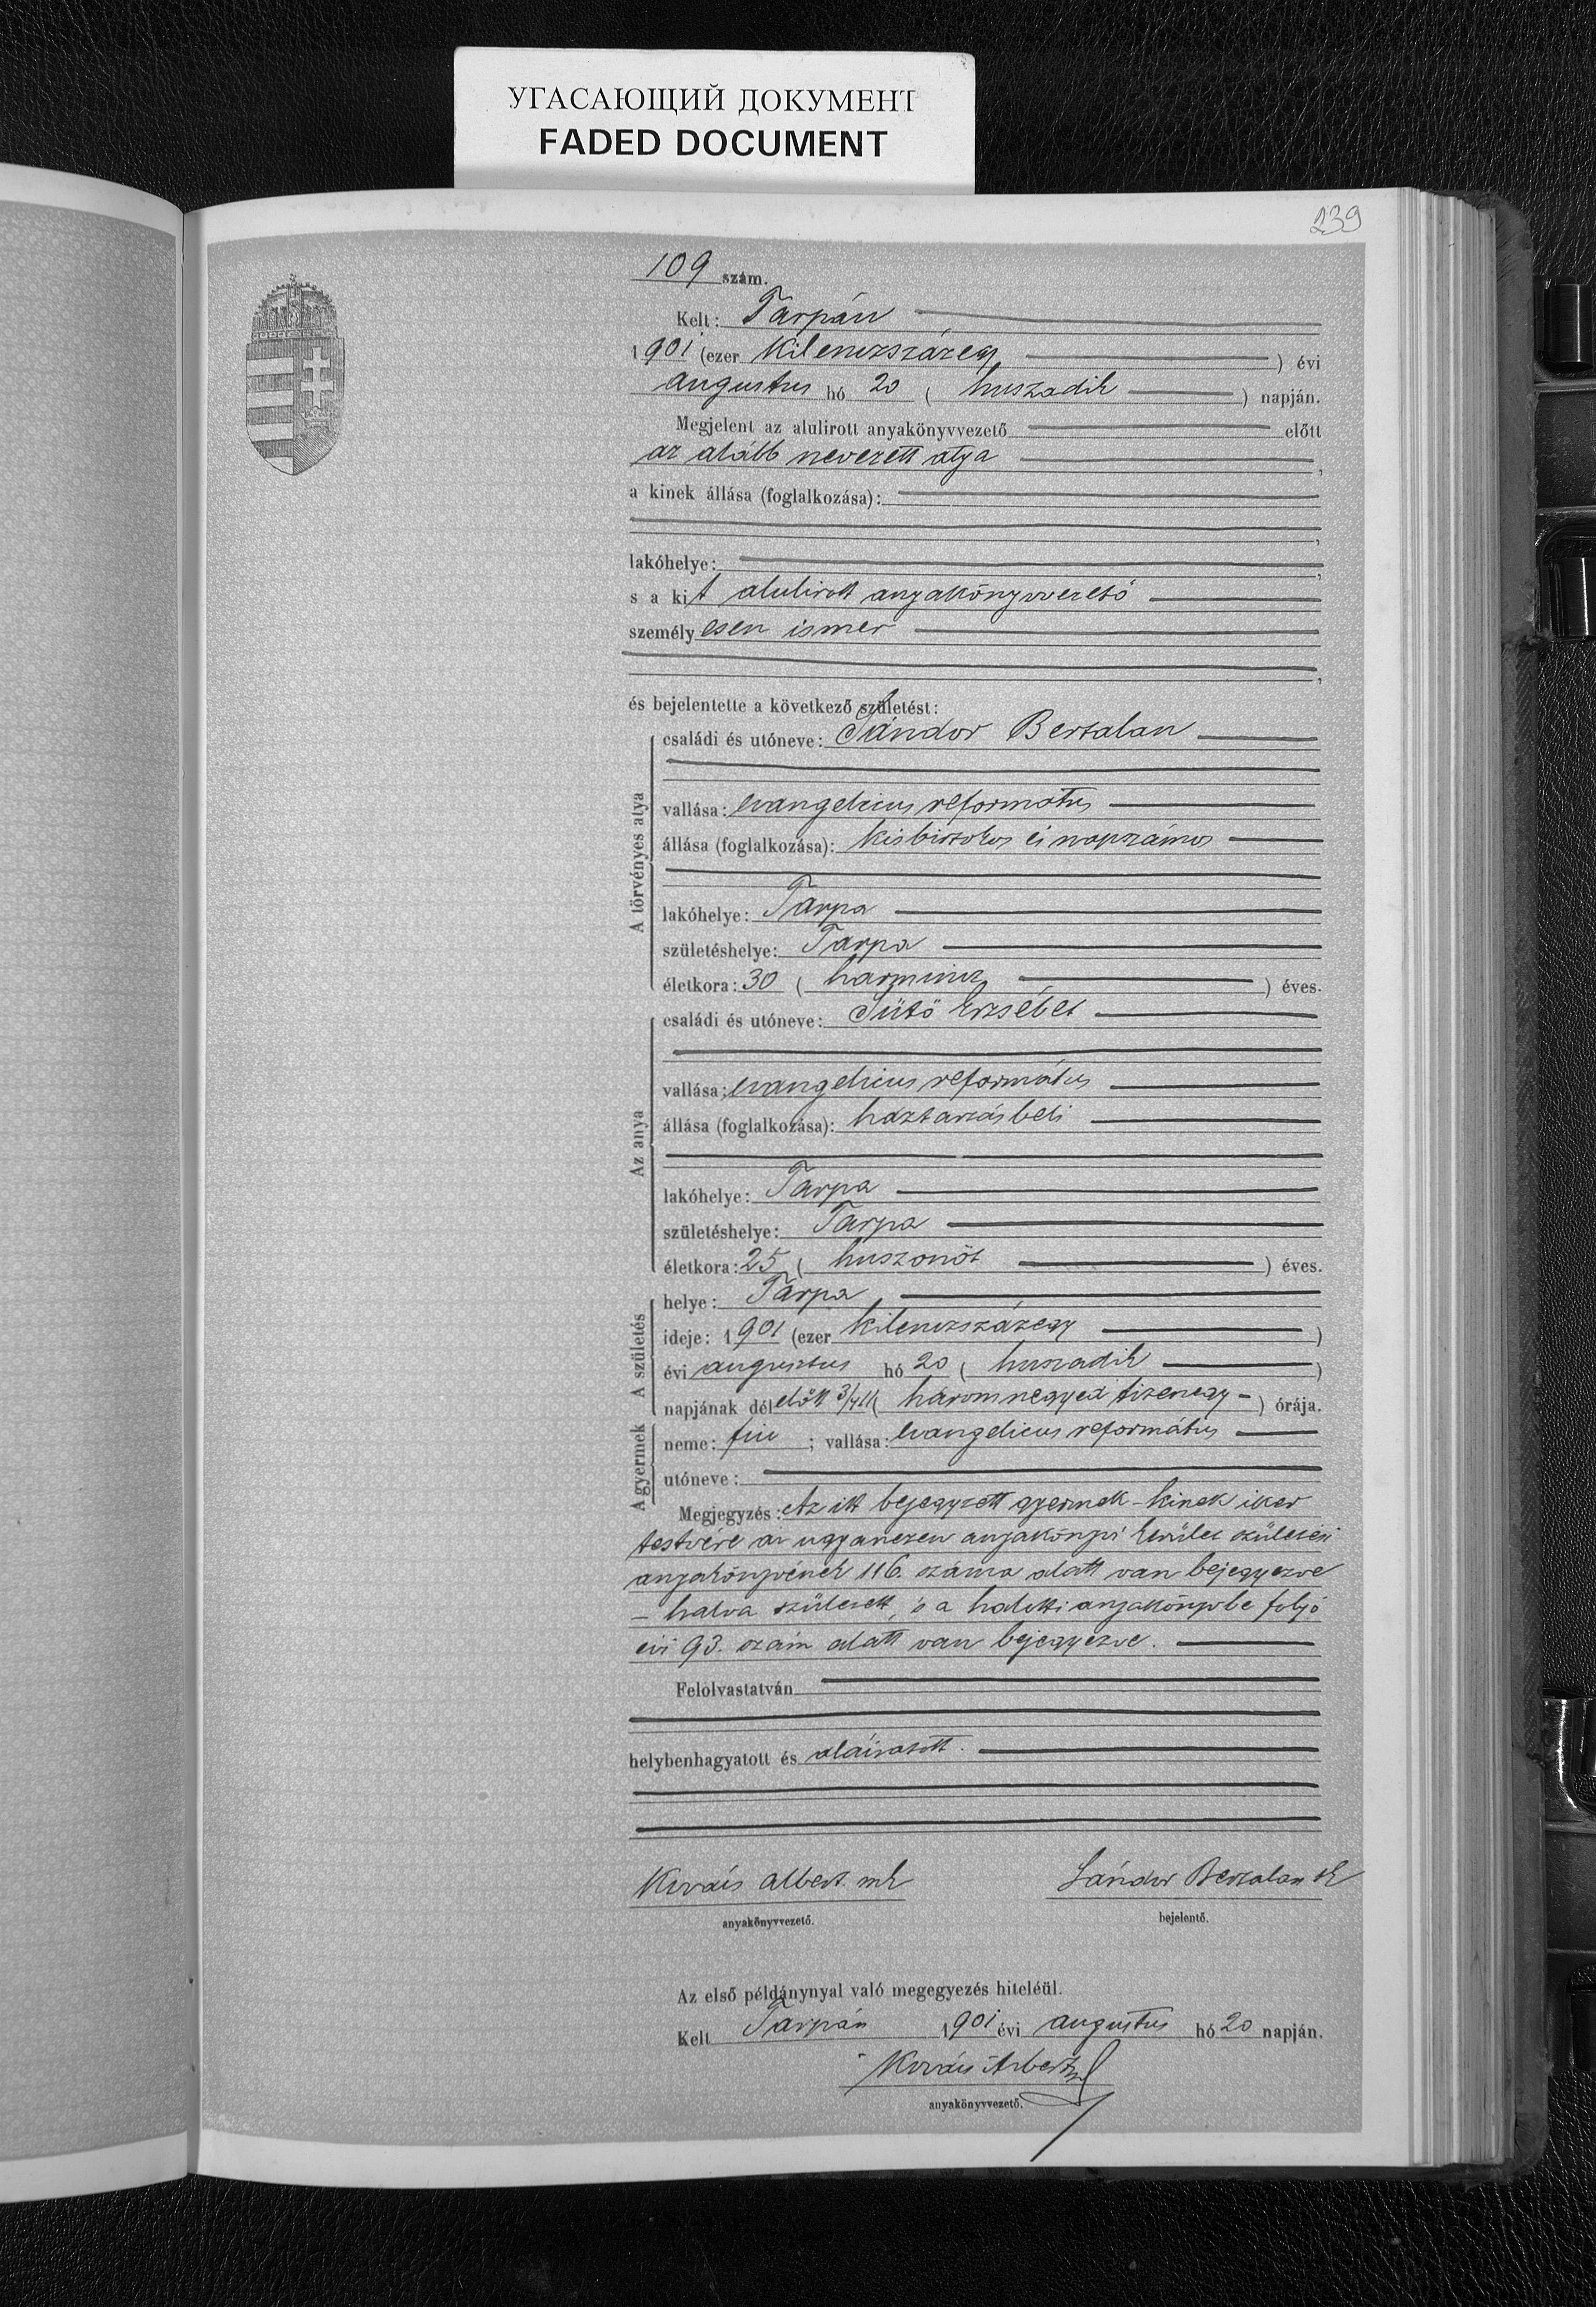 УГАСАЮЩИЙ ДОКУМЕНТ
FADED DOCUMENT
239
109 szám.
Kelt: Tarpán
1901 (ezer kilenczszázegy) évi
augusztus hó 20 (huszadik) napján.
Megjelent az alulirott anyakönyvvezető előtt
az alább nevezett atya,
a kinek állása (foglalkozása):
lakóhelye:
s a kit alulirott anyakönyvvezető
személyesen ismer
és bejelentette a következő születést:
A törvényes atya
családi és utóneve: Sándor Bertalan
vallása: evangelicus református
állása (foglalkozása): kisbirtokos és napszámos
lakóhelye: Tarpa
születéshelye: Tarpa
életkora: 30 (harmincz) éves.
Az anya
családi és utóneve: Sütő Erzsébet
vallása: evangelicus református
állása (foglalkozása): háztartásbeli
lakóhelye: Tarpa
születéshelye: Tarpa
életkora: 25 (huszonöt) éves.
A születés
helye: Tarpa
ideje: 1901 (ezer kilenczszázegy)
évi augusztus hó 20 (huszadik)
napjának délelőtt 3/4 11 (háromnegyed tizenegy) órája.
A gyermek
neme: fiu; vallása: evangelicus református
utóneve:
Megjegyzés: Az itt bejegyzett gyermek - kinek iker
testvére az ugyanezen anyakönyvi kerület születési
anyakönyvének 116. száma alatt van bejegyezve
- halva született, s a halotti anyakönyvbe folyó
évi 93. szám alatt van bejegyezve.
Felolvastatván
helybenhagyatott és aláiratott.
Kovács Albert mk
Sándor Bertalan sk
anyakönyvvezető.
bejelentő.
Az első példánynyal való megegyezés hiteléül.
Kelt Tarpán 1901 évi augusztus hó 20 napján.
Kovács Albert
anyakönyvvezető.